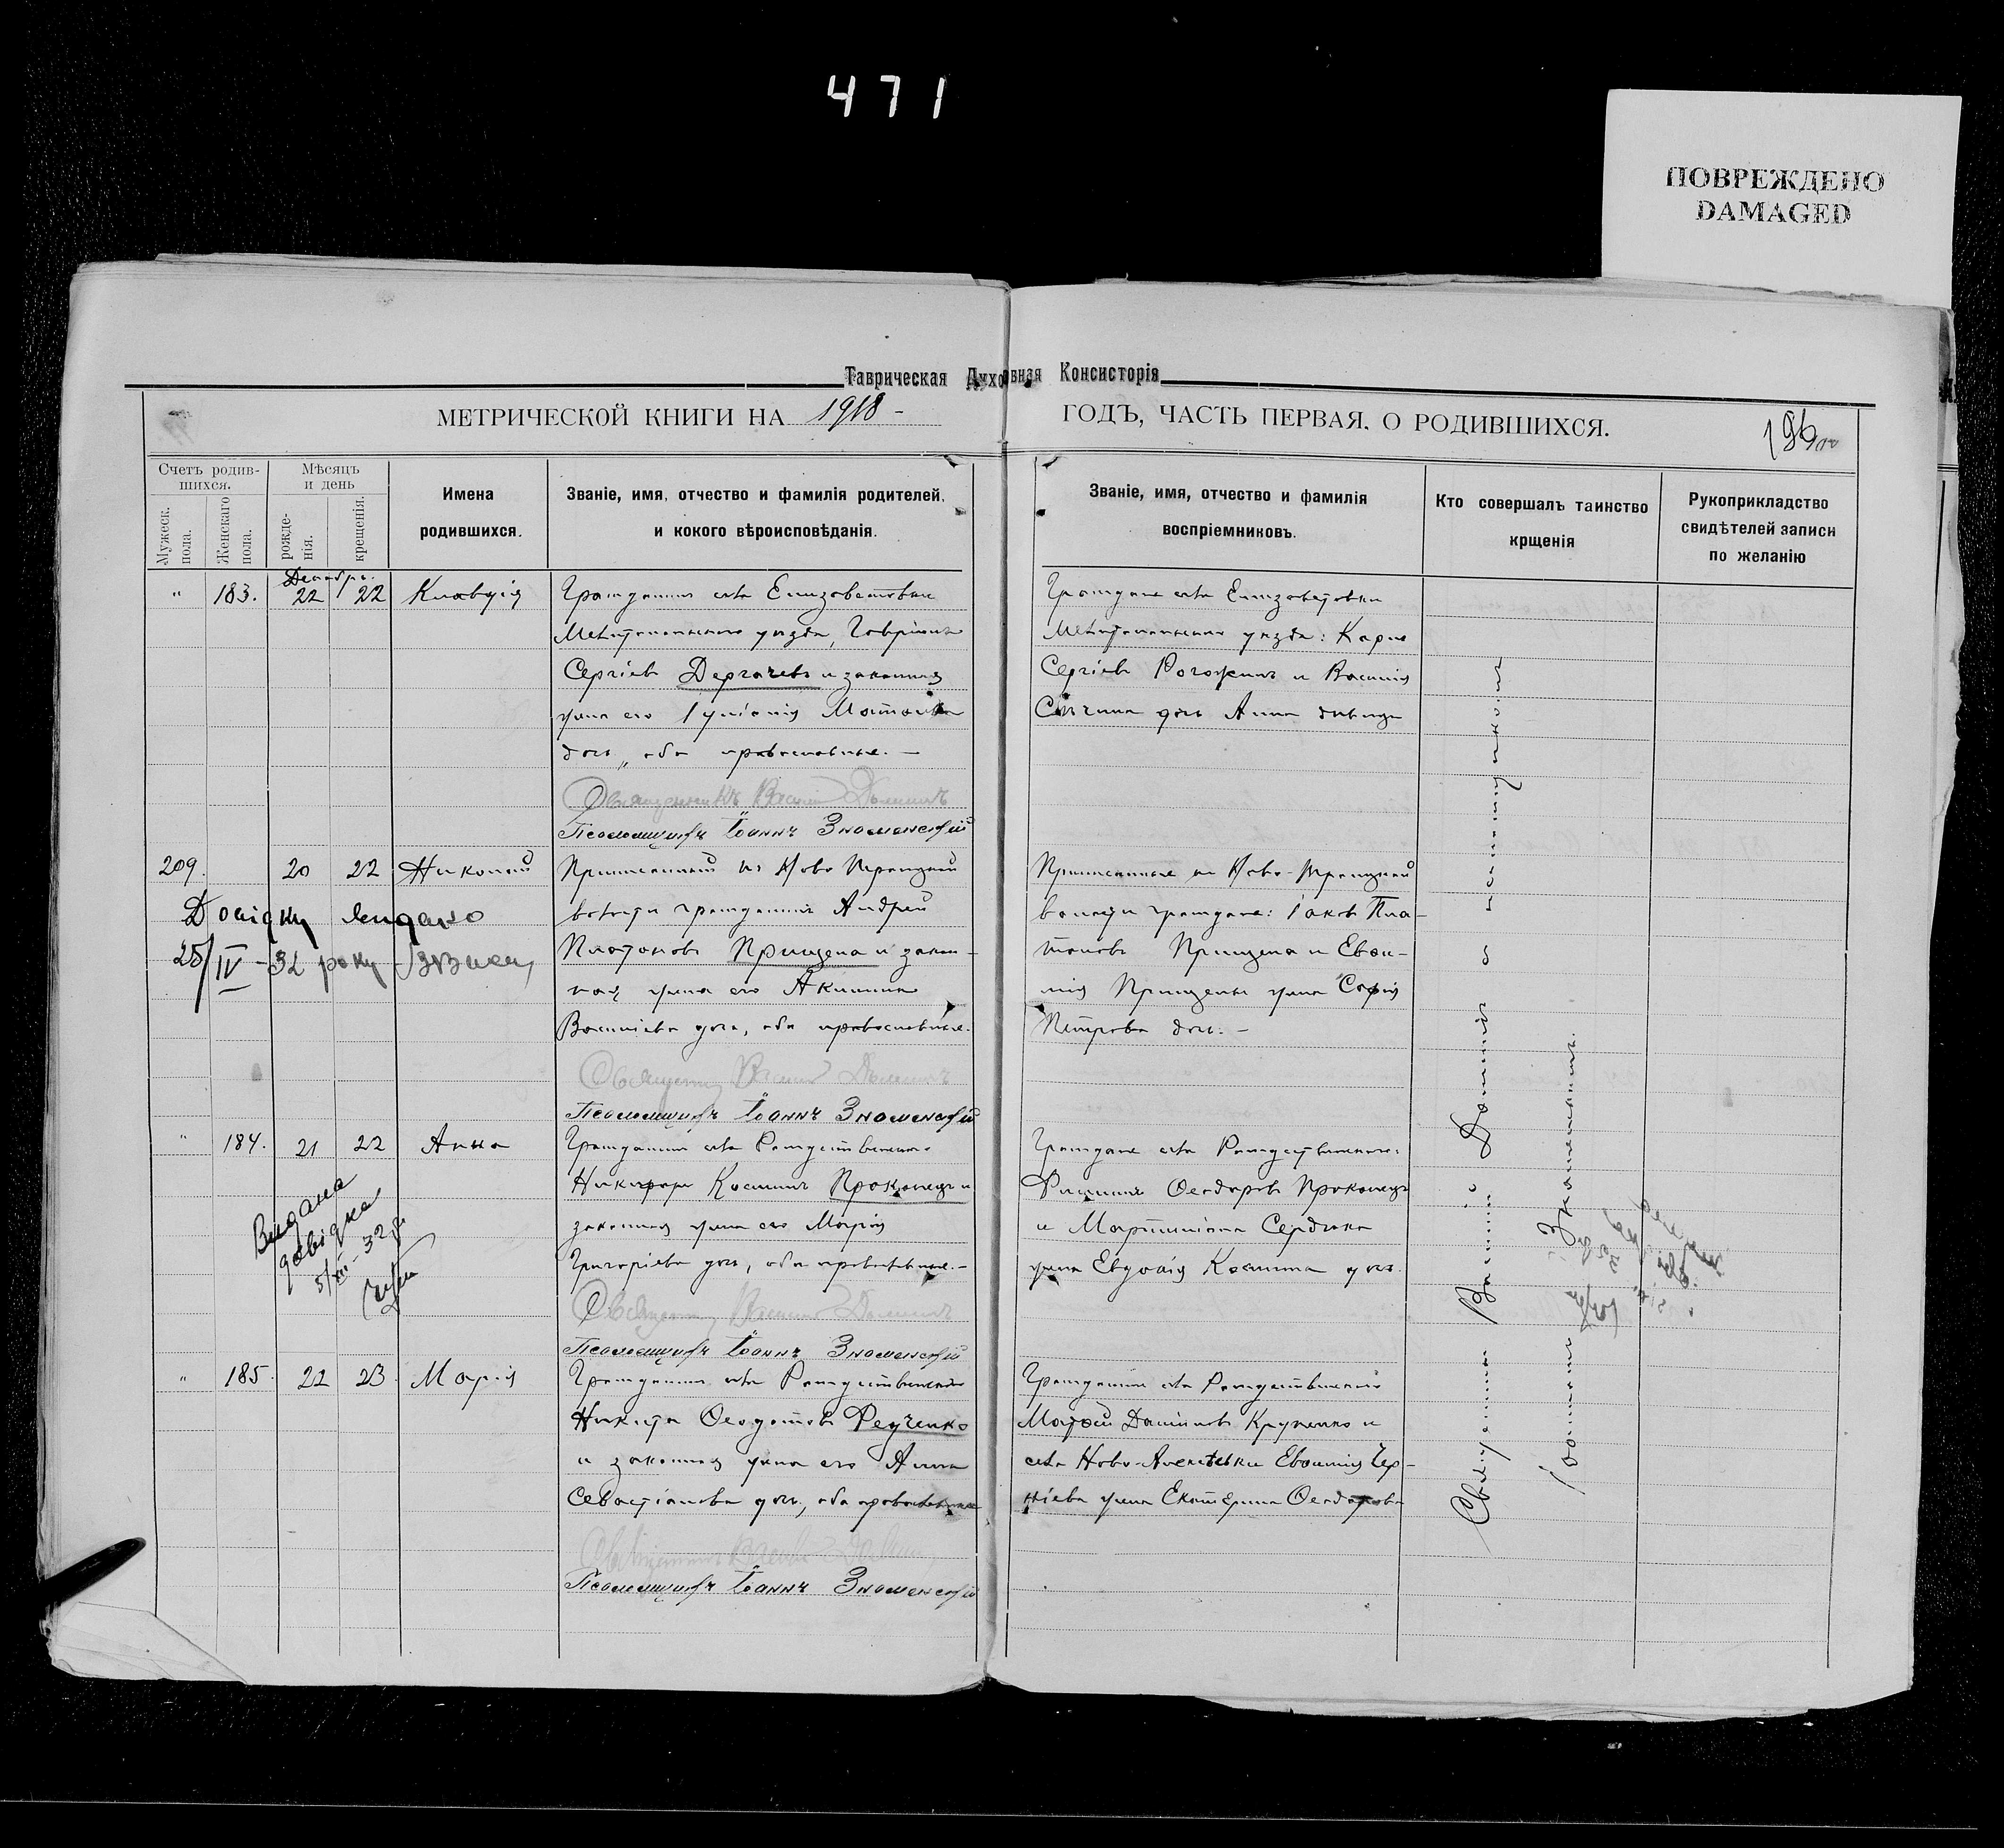 471
ПОВРЕЖДЕНО
DAMAGED
Таврическая Духовная Консисторія
МЕТРИЧЕСКОЙ КНИГИ НА 1918 -
ГОДЪ, ЧАСТЬ ПЕРВАЯ. О РОДИВШИХСЯ.
196
Счетъ родив-
шихся.
Мужеск. пола.
Женскаго пола.
Мѣсяцъ
и день
рожде-
нія.
крещенія.
Имена
родившихся.
Званіе, имя, отчество и фамилія родителей,
и кокого вѣроисповѣданія.
Званіе, имя, отчество и фамилія
воспріемниковъ.
Кто совершалъ таинство
крщенія
Рукоприкладство
свидѣтелей записи
по желанію
Декабрь.
" 183. 22 22 Клавдія
Гражданинъ села Елизаветовки
Мелитопольскаго уѣзда, Гавріилъ
Сергіевъ Дергачевъ и законная
жена его Іуліанія Матѳіева
дочь, оба православные. —
Священникъ Василій Данилъ
Псаломщикъ Іоаннъ Знаменскій
Граждане села Елизаветовки
Мелитопольскаго уѣзда: Карпъ
Сергіевъ Рогожинъ и Василія
дочь Анна дѣвица
209. 20 22 Николай
Приписанный къ Ново-Троицкой
волости гражданинъ Андрей
Платоновъ Прищепа и закон-
ная жена его Акилина
Василіева дочь, оба православные.
Священникъ Василій Данилъ
Псаломщикъ Іоаннъ Знаменскій
Приписанные къ Ново-Троицкой
волости граждане: Іаковъ Пла-
тоновъ Прищепа и Евѳи-
мія Прищепы жена Софія
Петрова дочь. -
Довідку видано
25/IV - 32 року
" 184. 21 22 Анна
Гражданинъ села Рождественскаго
Никифоръ Косминъ Прокопецъ и
законная жена его Марія
Григоріева дочь, оба православные. -
Священникъ Василій Данилъ
Псаломщикъ Іоаннъ Знаменскій
Граждане села Рождественскаго:
Филиппъ Ѳеодоровъ Прокопецъ
и Мартиніана Сердюка
жена Евдокія Космина дочь.
Видана
довідка
5/XII - 32 р.
" 185. 22 23 Марія
Гражданинъ села Рождественскаго
Никита Ѳеодотовъ Редченко
и законная жена его Анна
Севастіанова дочь, оба православные
Священникъ Василій Данилъ
Псаломщикъ Іоаннъ Знаменскій
Гражданинъ села Рождественскаго
Матѳей Даніиловъ Крупенко и
села Ново-Алексѣевки Евѳимія Чер-
жена Екатерина Ѳеодорова
Священникъ Василій Данилъ съ псаломщикомъ
Іоанномъ Знаменскимъ.